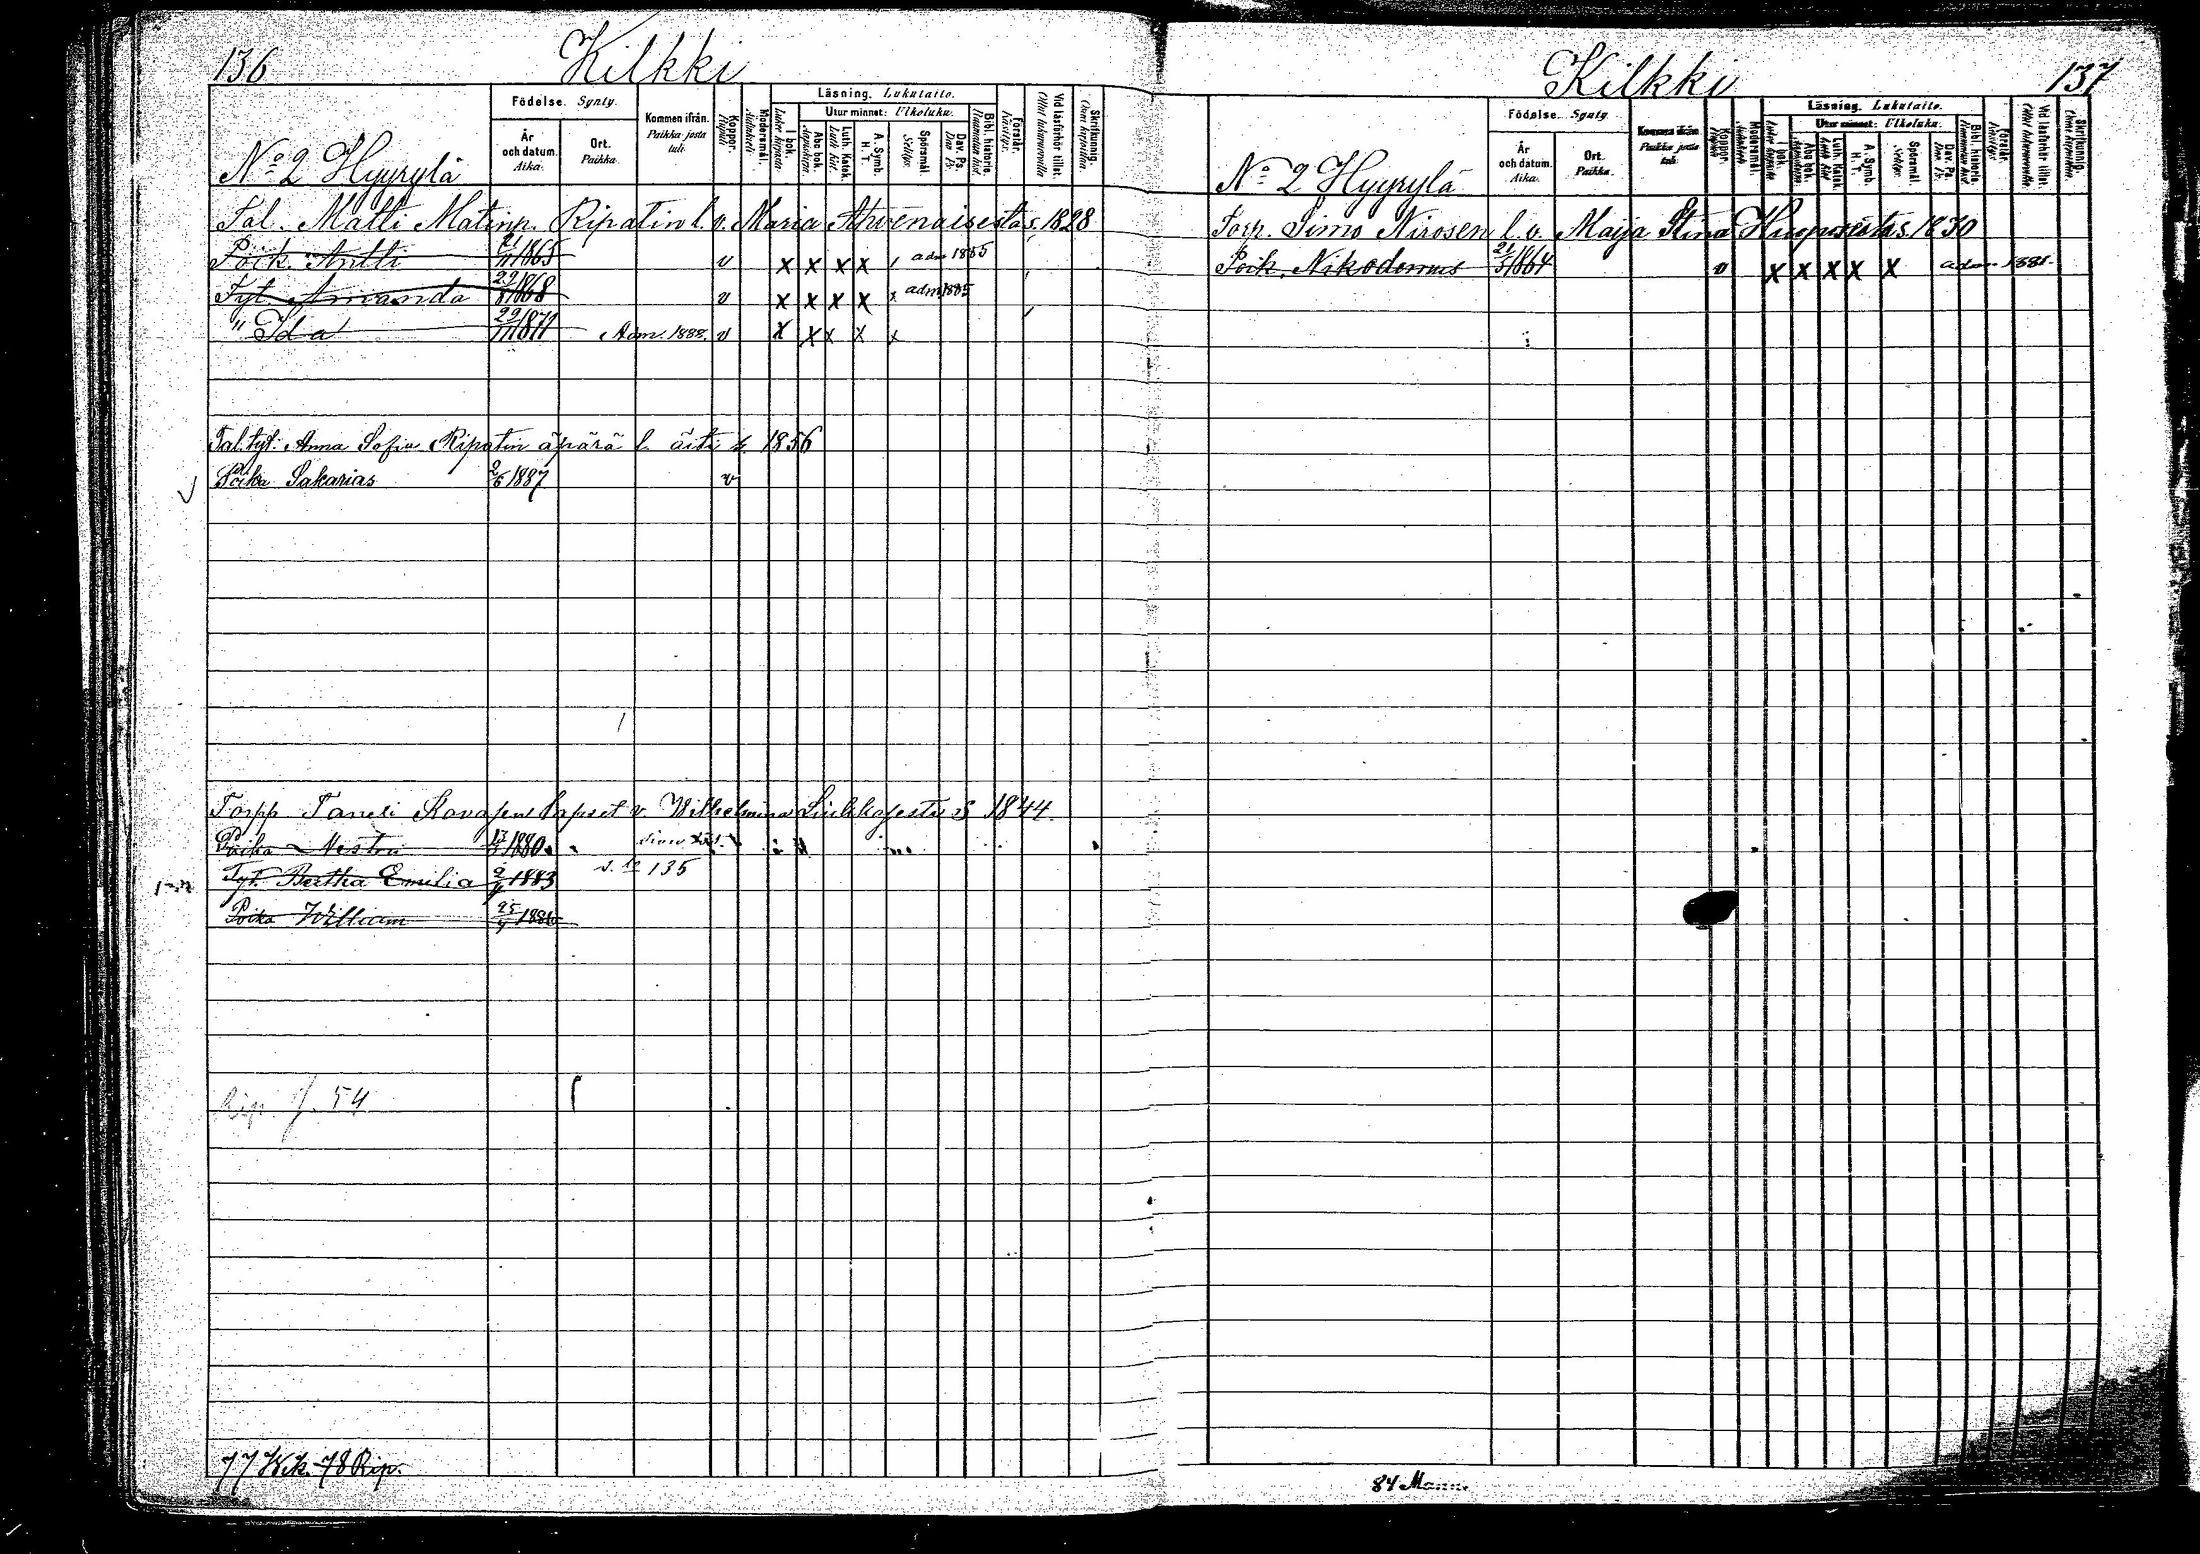 136
Kilkki
Födelse. Synty.
År och datum. Aika.
Ort. Paikka.
Kommen ifrån. Paikka josta tuli.
Koppor. Rupuli
Modersmål.
Läsning. Lukutaito.
I bok.
Utur minnet: Ulkoluku.
Abc bok.
Luth. Katek.
A. Symb. H. T.
Spörsmål.
Dav. Ps.
Bibl. historia.
Förstår.
Vid läsförhör tillst.
Skrifkunnig.
No 2 Hyyrylä
Tal. Matti Matinp. Ripatin l. v. Maria Ahvenaisesta s. 1828
Poik. Antti 1865 v x x x x adm 1885
Tyt. Amanda 29/8 1868 v x x x x x adm 1885
" Ida 29/11 1871 Adm. 1888. v x x x x x
Tal. tyt. Anna Sofia Ripatin äpärä l. äiti s. 1856
Poika Sakarias 2/6 1887 v
Torpp. Taneli lapset v. Wilhelmina s 1844.
Poika Nestori 1880
Tyt. Bertha Emilia 1883 s. 135
Poika William 25/9 1886
Rip. f. 54
77 Wik. 78 Rip.
137
Kilkki
Födelse. Synty.
År och datum. Aika.
Ort. Paikka.
Kommen ifrån. Paikka josta tuli.
Koppor.
Modersmål.
Läsning. Lukutaito.
I bok.
Utur minnet: Ulkoluku.
Abc bok.
Luth. Katek.
A. Symb. H. T.
Spörsmål.
Dav. Ps.
Bibl. historia.
Förstår.
Vid läsförhör tillst.
Skrifkunnig.
No 2 Hyyrylä
Torp. Simo Nirosen l. v. Maija Stina s. 1830
Poik. Nikodemus 1864 v x x x x x adm.
84 Mann.